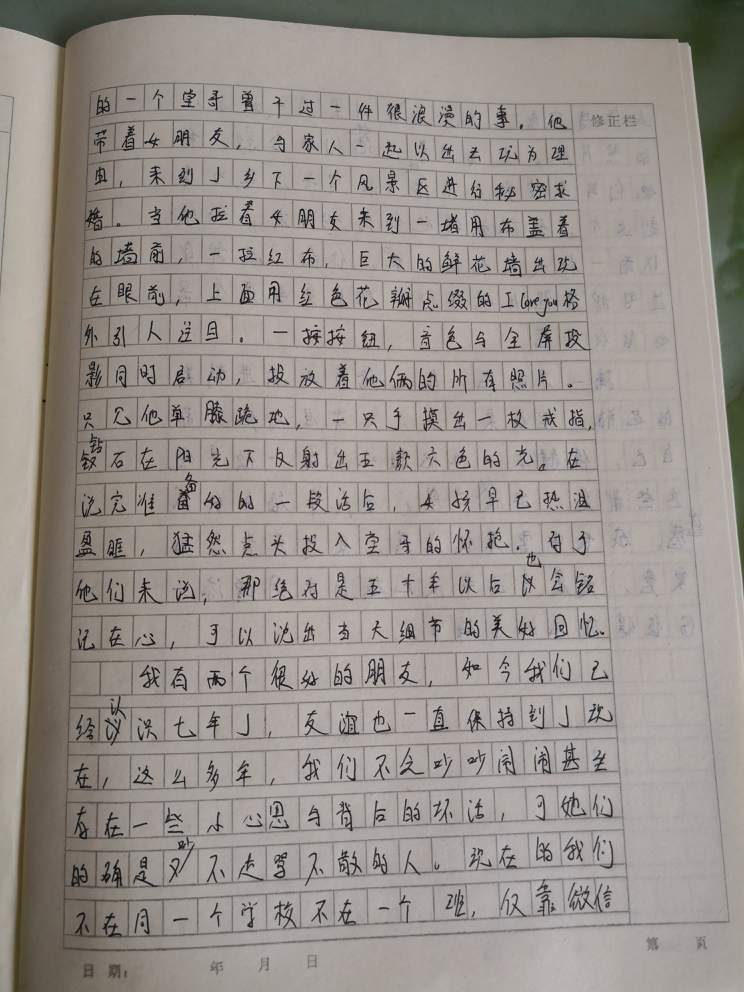 的一个堂哥曾干过一件很浪漫的事。他
修正栏
带着女朋友,与家人一起以出去玩为理
由,来到了乡下一个风景区进行秘密求
婚。当他拉着女朋友来到一堵用布盖着
的墙前,一拉红布,巨大的鲜花墙出现
在眼前,上面用红色花瓣点缀的I love you格
外引人注目。一按按钮,音色与全屏投
影同时启动,投放着他俩的所有照片。
只见他单膝跪地,一只手摸出一枚戒指,
钻石在阳光下反射出五颜六色的光。在
说完准备好的一段话后,女孩早已热泪
盈眶,猛然点头投入堂哥的怀抱。对于
他们来说,那绝对是五十年以后也会铭
记在心,可以说出当天细节的美好回忆。
我有两个很好的朋友,如今我们已
经认识七年了,友谊也一直保持到了现
在,这么多年,我们不免吵吵闹闹甚至
存在一些小心思与背后的坏话,可她们
的确是吵不走骂不散的人。现在的我们
不在同一个学校不在一个班,仅靠微信
第 页
日期: 年 月 日